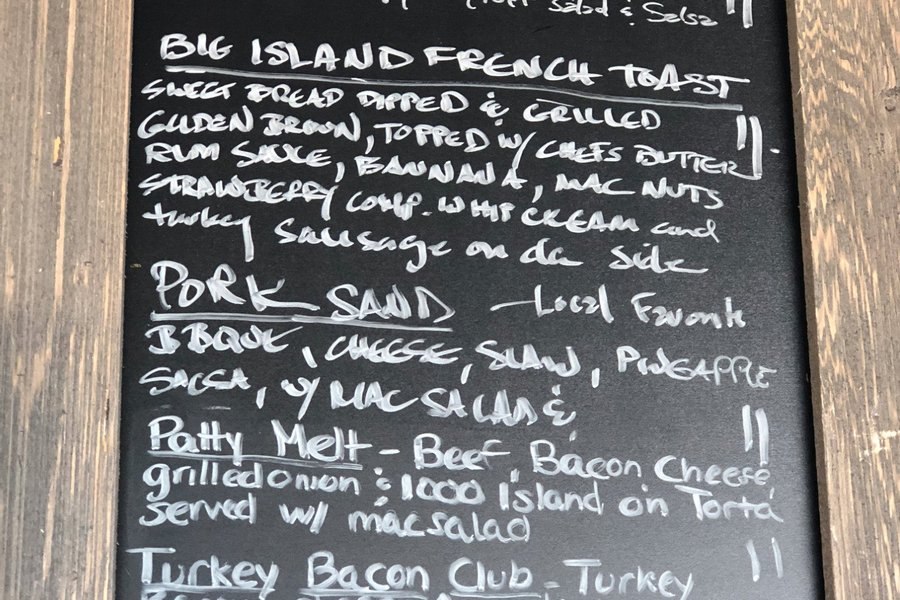 Salad & Salsa 11
BIG ISLAND FRENCH TOAST
SWEET BREAD DIPPED & GRILLED
GOLDEN BROWN, TOPPED W/ CHEFS BUTTER 11.
RUM SAUCE, BANNANA, MAC NUTS
STRAWBERRY COMP. WHIP CREAM and
turkey Sausage on da side
PORK SAND - Local Favorite
BBQUE, CHEESE, SLAW, PINEAPPLE
SALSA, W/ MAC SALAD &
Patty Melt - Beef, Bacon Cheese 11
grilled onion & 1000 Island on Torta
served w/ mac salad
Turkey Bacon Club - Turkey 11